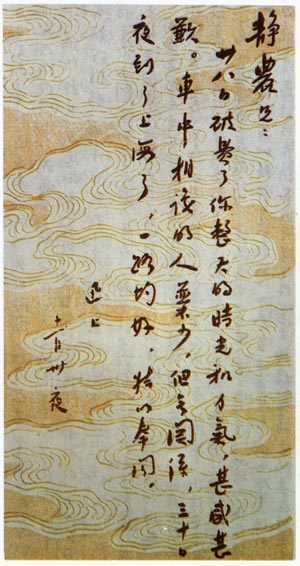 静農兄：
廿八日破費了你整天的時光和力氣，甚感甚
歉。車中相識的人並不少，但无關係，三十日
夜到了上海了，一路均好，特以奉聞。
迅上
十一月卅夜